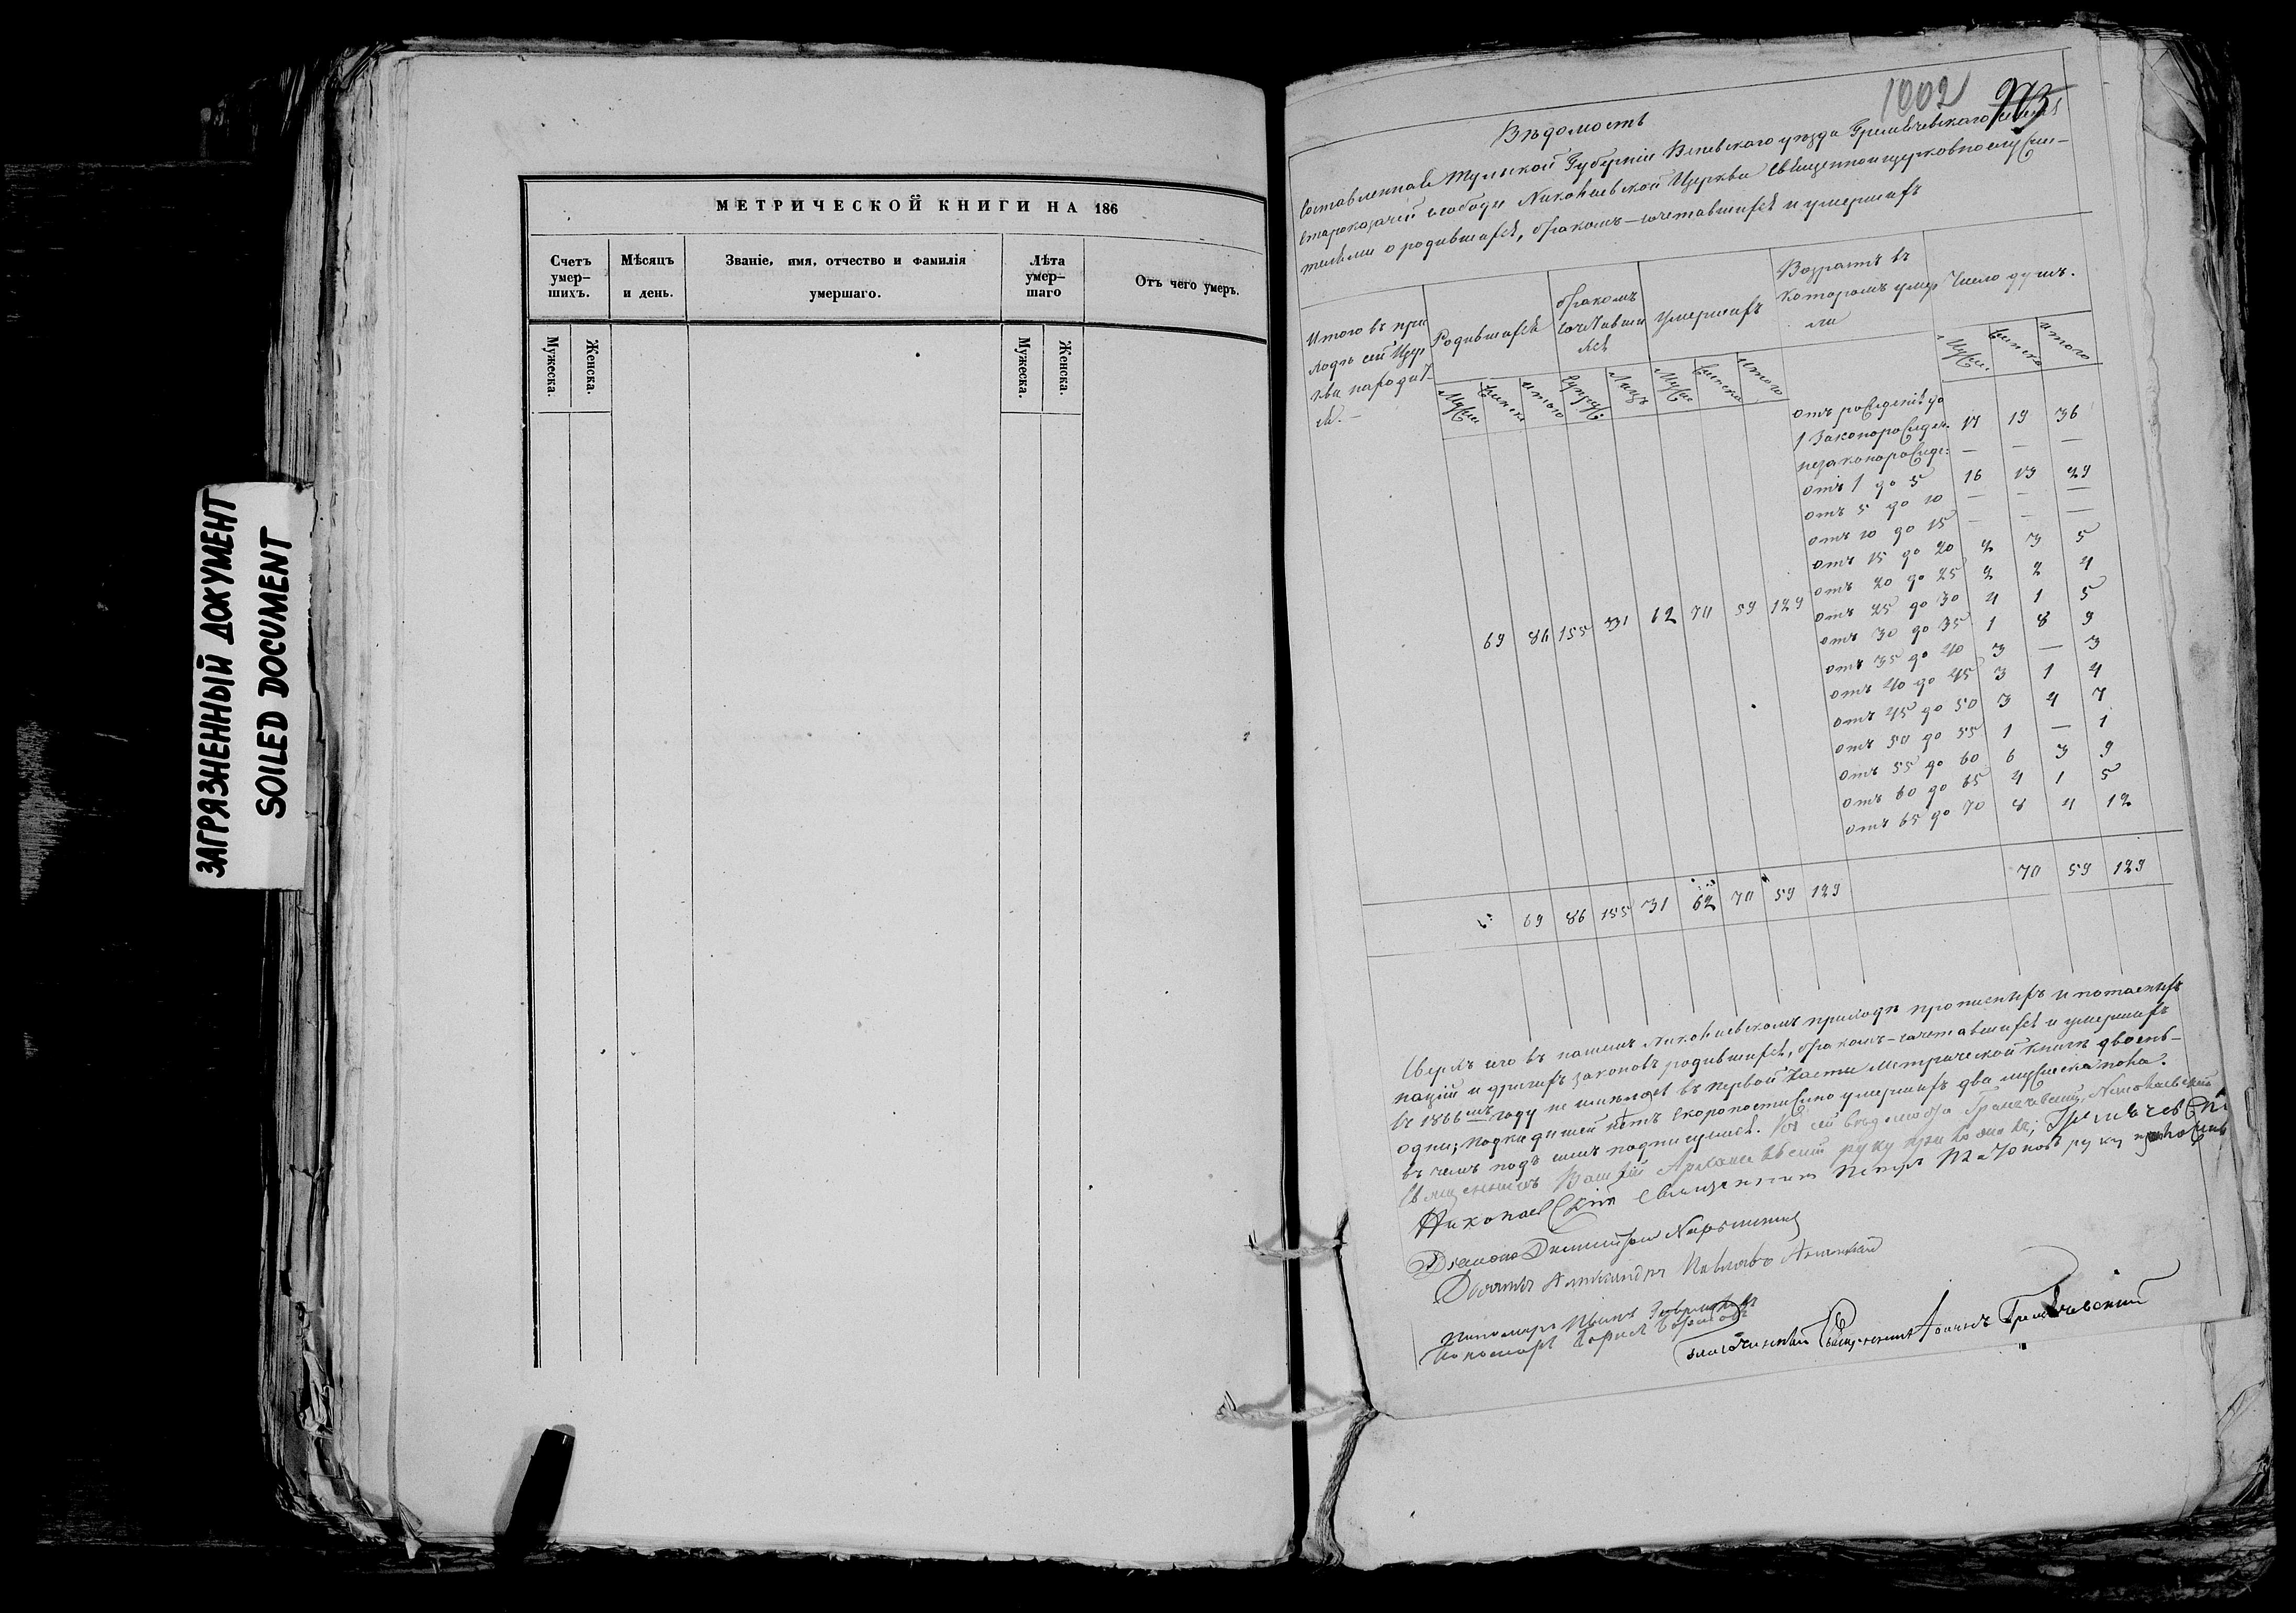 ЗАГРЯЗНЕННЫЙ ДОКУМЕНТ
SOILED DOCUMENT
МЕТРИЧЕСКОЙ КНИГИ НА 186
Счетъ умер–шихъ.
Мѣсяцъ и день.
Званіе, имя, отчество и фамилія умершаго.
Лѣта умер–шаго
Отъ чего умеръ.
Мужеска.
Женска.
Мужеска.
Женска.
1002 973
Вѣдомость
составленная Тульской Губерніи Уѣзда Гремячевского
староказачей слободы Николаевской Церкви Священноцерковнослужи–
телями о родившихся, бракомъ–сочетавшихся и умершихъ
Итого въ при
ходѣ сей Цер
кви народит
ся.
Родившихся
бракомъ
сочетавши
хся
Умершихъ
Возрастъ въ
которомъ умер
ли
Число душъ.
Муж Женск Итого Супруж. Лицъ Муж Женск Итого
Муж. Женск Итого
отъ рожденія до
1 законорожден. 17 19 36
незаконорожде: — — —
отъ 1 до 5 16 13 29
отъ 5 до 10 — — —
отъ 10 до 15 — — —
отъ 15 до 20 2 3 5
отъ 20 до 25 2 2 4
отъ 25 до 30 4 1 5
отъ 30 до 35 1 8 9
отъ 35 до 40 3 — 3
отъ 40 до 45 3 1 4
отъ 45 до 50 3 4 7
отъ 50 до 55 1 — 1
отъ 55 до 60 6 3 9
отъ 60 до 65 4 1 5
отъ 65 до 70 8 4 12
69 86 155 31 62 70 59 129
69 86 155 31 62 70 59 129 70 59 129
Сверхъ сего въ нашемъ Николаевскомъ приходѣ
націй и другихъ законовъ родившихся, бракомъ–сочетавшихся и умершихъ
въ 1866мъ году не имѣлося въ первой части метрической книги двоень–
одни; подкидышей нѣтъ скоропостижно умершихъ два мужеска пола.
въ чемъ подъ симъ подписуемся. Къ сей вѣдомости Гремячевский Николаевский
Священникъ Василій Архангельскій руку приложилъ; Гремячевский
Николаевский священникъ Петръ руку приложилъ
Діаконъ Димитрій
Дьячекъ Александръ Павловъ
Пономарь Иванъ
Пономарь Борисъ
Благочинный Священникъ Іоаннъ Гремячевский